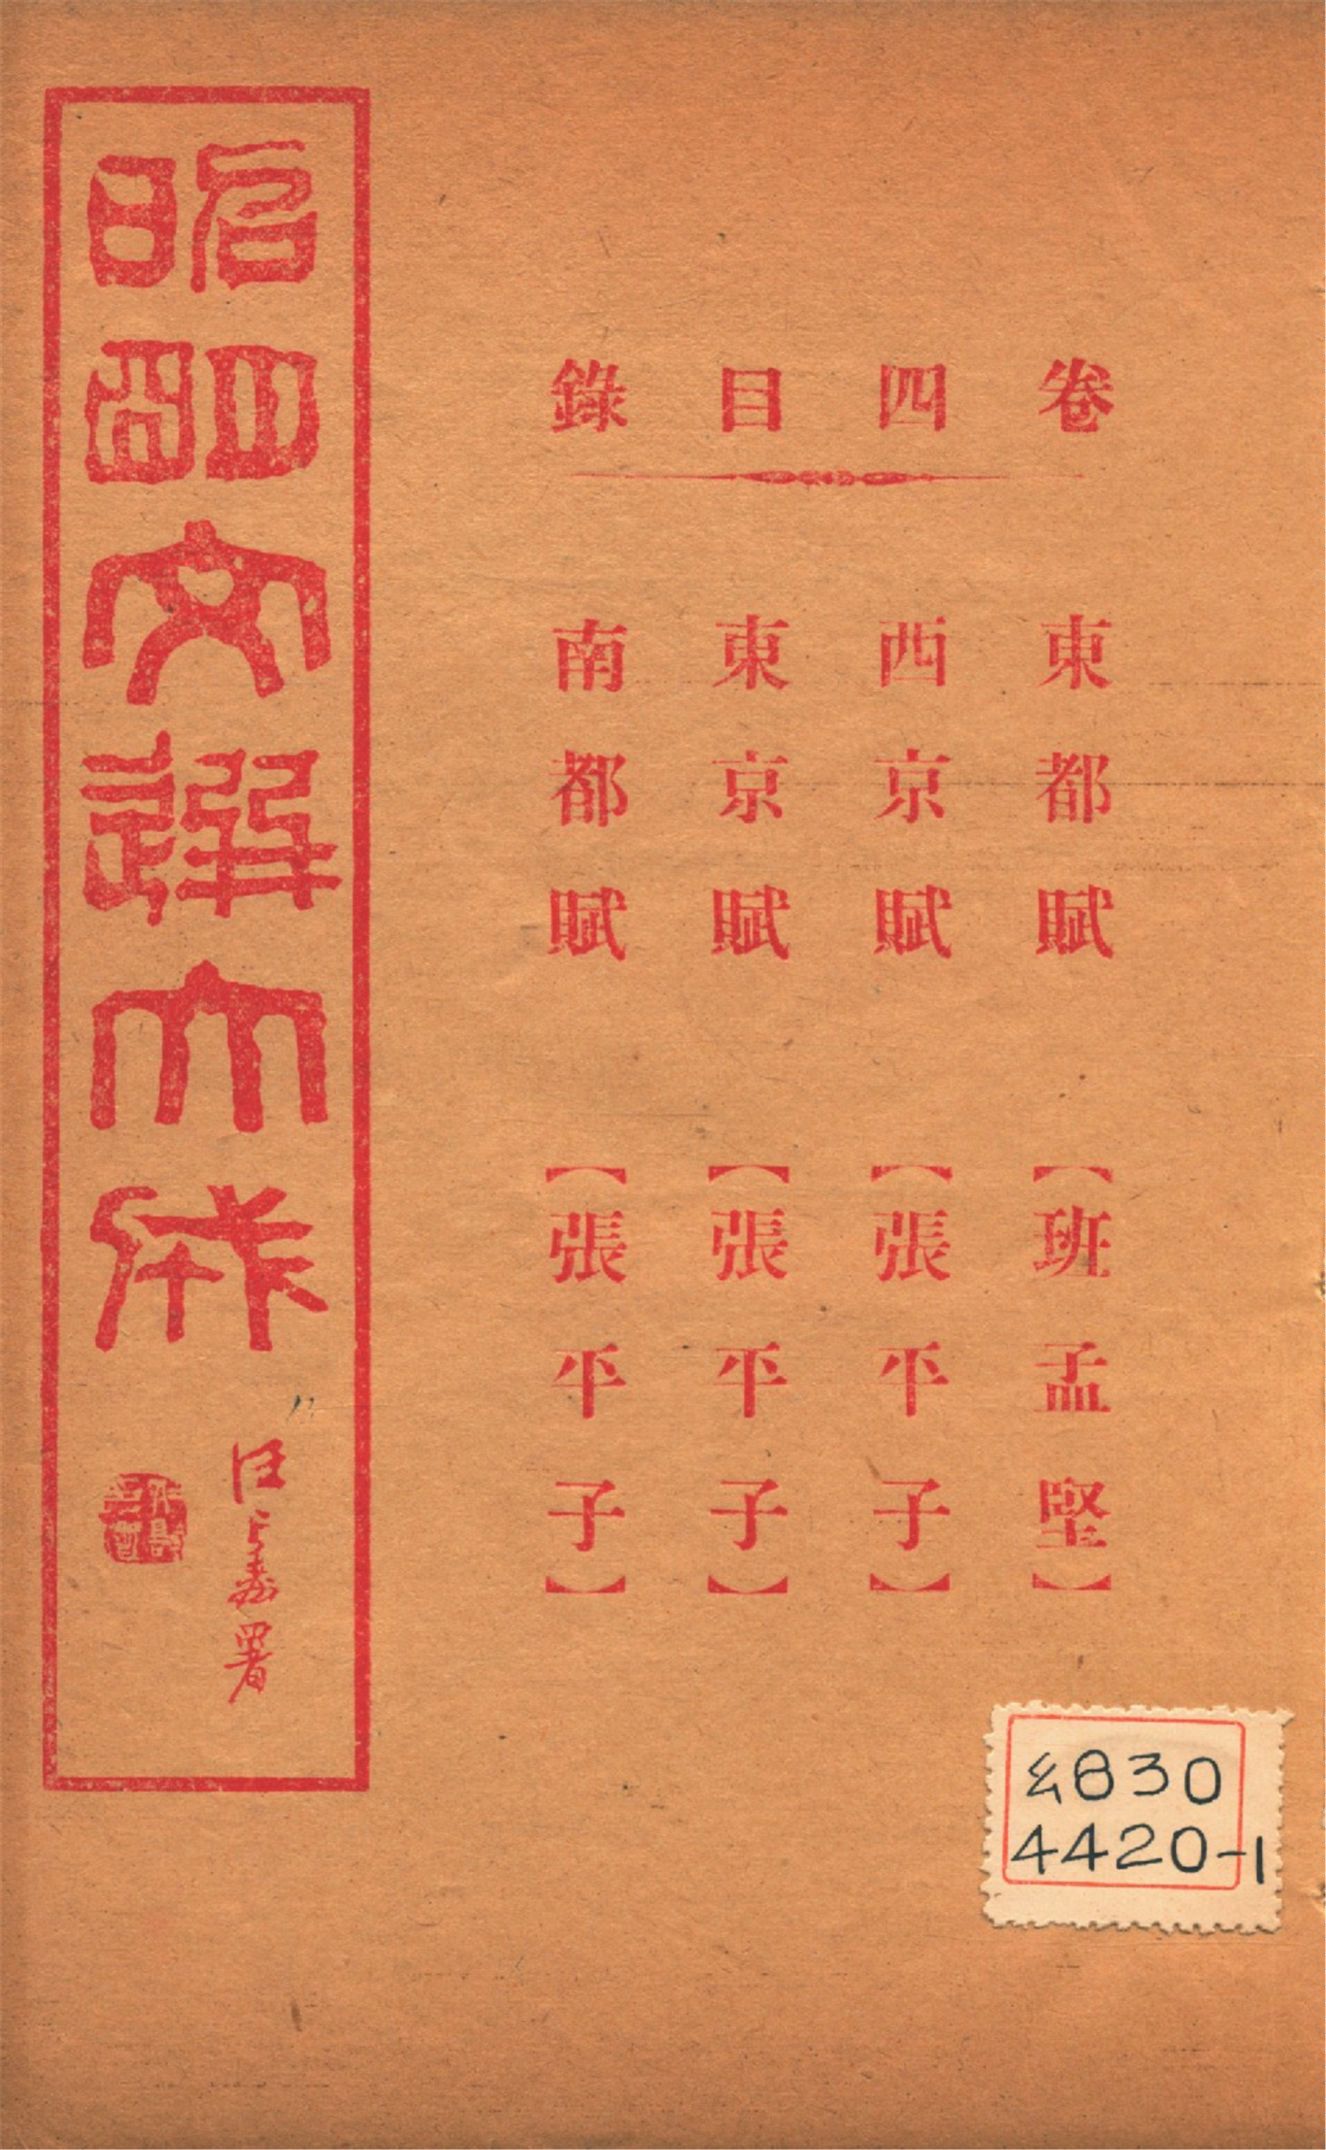 卷四目錄
東都賦 【班孟堅】
西京賦 【張平子】
東京賦 【張平子】
南都賦 【張平子】
昭明文選大成
署
830
4420-1